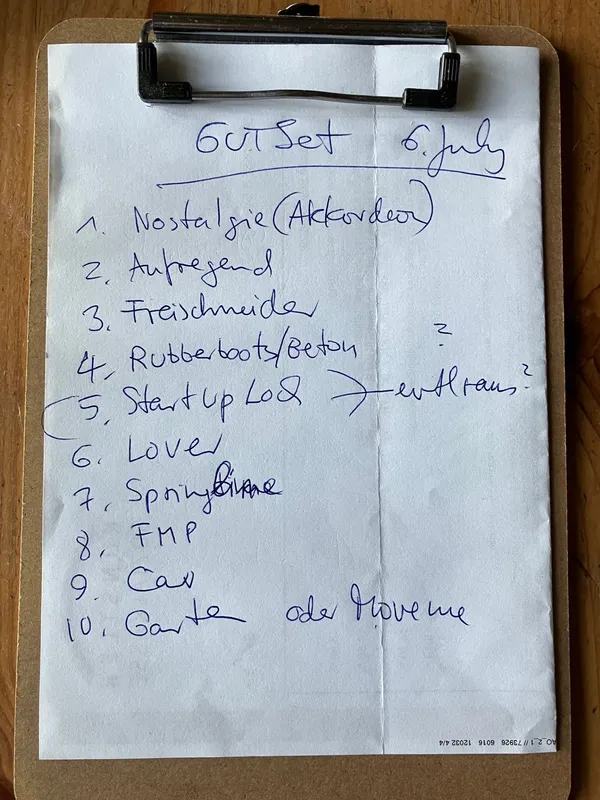 GUT Set 6. July
1. Nostalgie (Akkordeon)
2. Aufregend
3. Freischneider
?
4. Rubberboots/Beton
5. Start up Lo evtl raus?
6. Lover
7. Spring
8. FMP
9. Car
10. Garten oder Move me
AO_2_1 // 73926 6016 12032 4/4